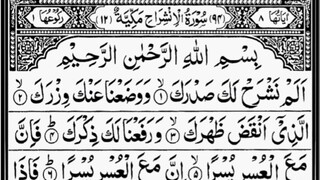 اٰيَاتُهَا ٨ (٩٤) سُوْرَةُ الْاِنْشِرَاحِ مَكِّيَّةٌ (١٢) رُكُوْعُهَا ١
بِسْمِ اللّٰهِ الرَّحْمٰنِ الرَّحِيْمِ
اَلَمْ نَشْرَحْ لَكَ صَدْرَكَ ۝١ وَوَضَعْنَا عَنْكَ وِزْرَكَ ۝٢
الَّذِيْٓ اَنْقَضَ ظَهْرَكَ ۝٣ وَرَفَعْنَا لَكَ ذِكْرَكَ ۝٤ فَاِنَّ
مَعَ الْعُسْرِ يُسْرًا ۝٥ اِنَّ مَعَ الْعُسْرِ يُسْرًا ۝٦ فَاِذَا